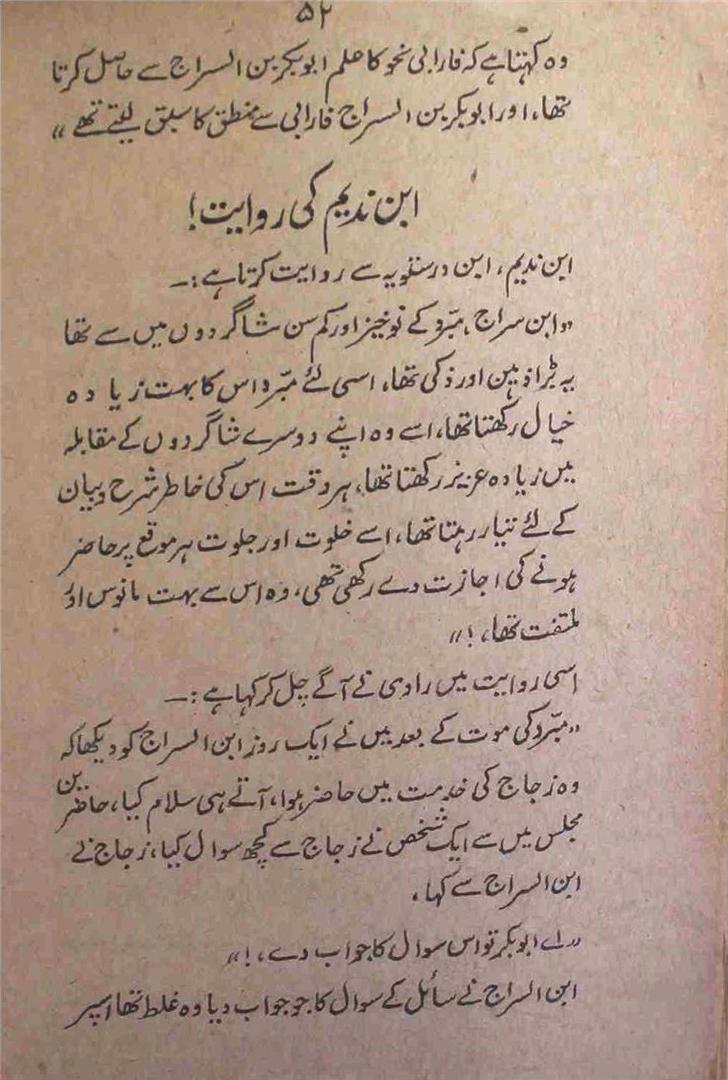 ۵۲
وہ کہتا ہے کہ فارابی نحو کا علم ابوبکر بن السراج سے حاصل کرتا
تھا، اور ابوبکر بن السراج فارابی سے منطق کا سبق لیتے تھے"
ابن ندیم کی روایت!
ابن ندیم، ابن درستویہ سے روایت کرتا ہے:۔
"ابن سراج، مبرّد کے نوخیز اور کم سن شاگردوں میں سے تھا
یہ بڑا ذہین اور ذکی تھا، اسی لئے مبرّد اس کا بہت زیادہ
خیال رکھتا تھا، اسے وہ اپنے دوسرے شاگردوں کے مقابلہ
میں زیادہ عزیز رکھتا تھا، ہر وقت اس کی خاطر شرح و بیان
کے لئے تیار رہتا تھا، اسے خلوت اور جلوت ہر موقع پر حاضر
ہونے کی اجازت دے رکھی تھی، وہ اس سے بہت مانوس اور
ملتفت تھا،!"
اسی روایت میں راوی نے آگے چل کر کہا ہے:۔
"مبرّد کی موت کے بعد میں نے ایک روز ابن السراج کو دیکھا کہ
وہ زجاج کی خدمت میں حاضر ہوا، آتے ہی سلام کیا، حاضرین
مجلس میں سے ایک شخص نے زجاج سے کچھ سوال کیا، زجاج نے
ابن السراج سے کہا،
"اے ابوبکر تو اس سوال کا جواب دے،!"
ابن السراج نے سائل کے سوال کا جو جواب دیا وہ غلط تھا اسپر